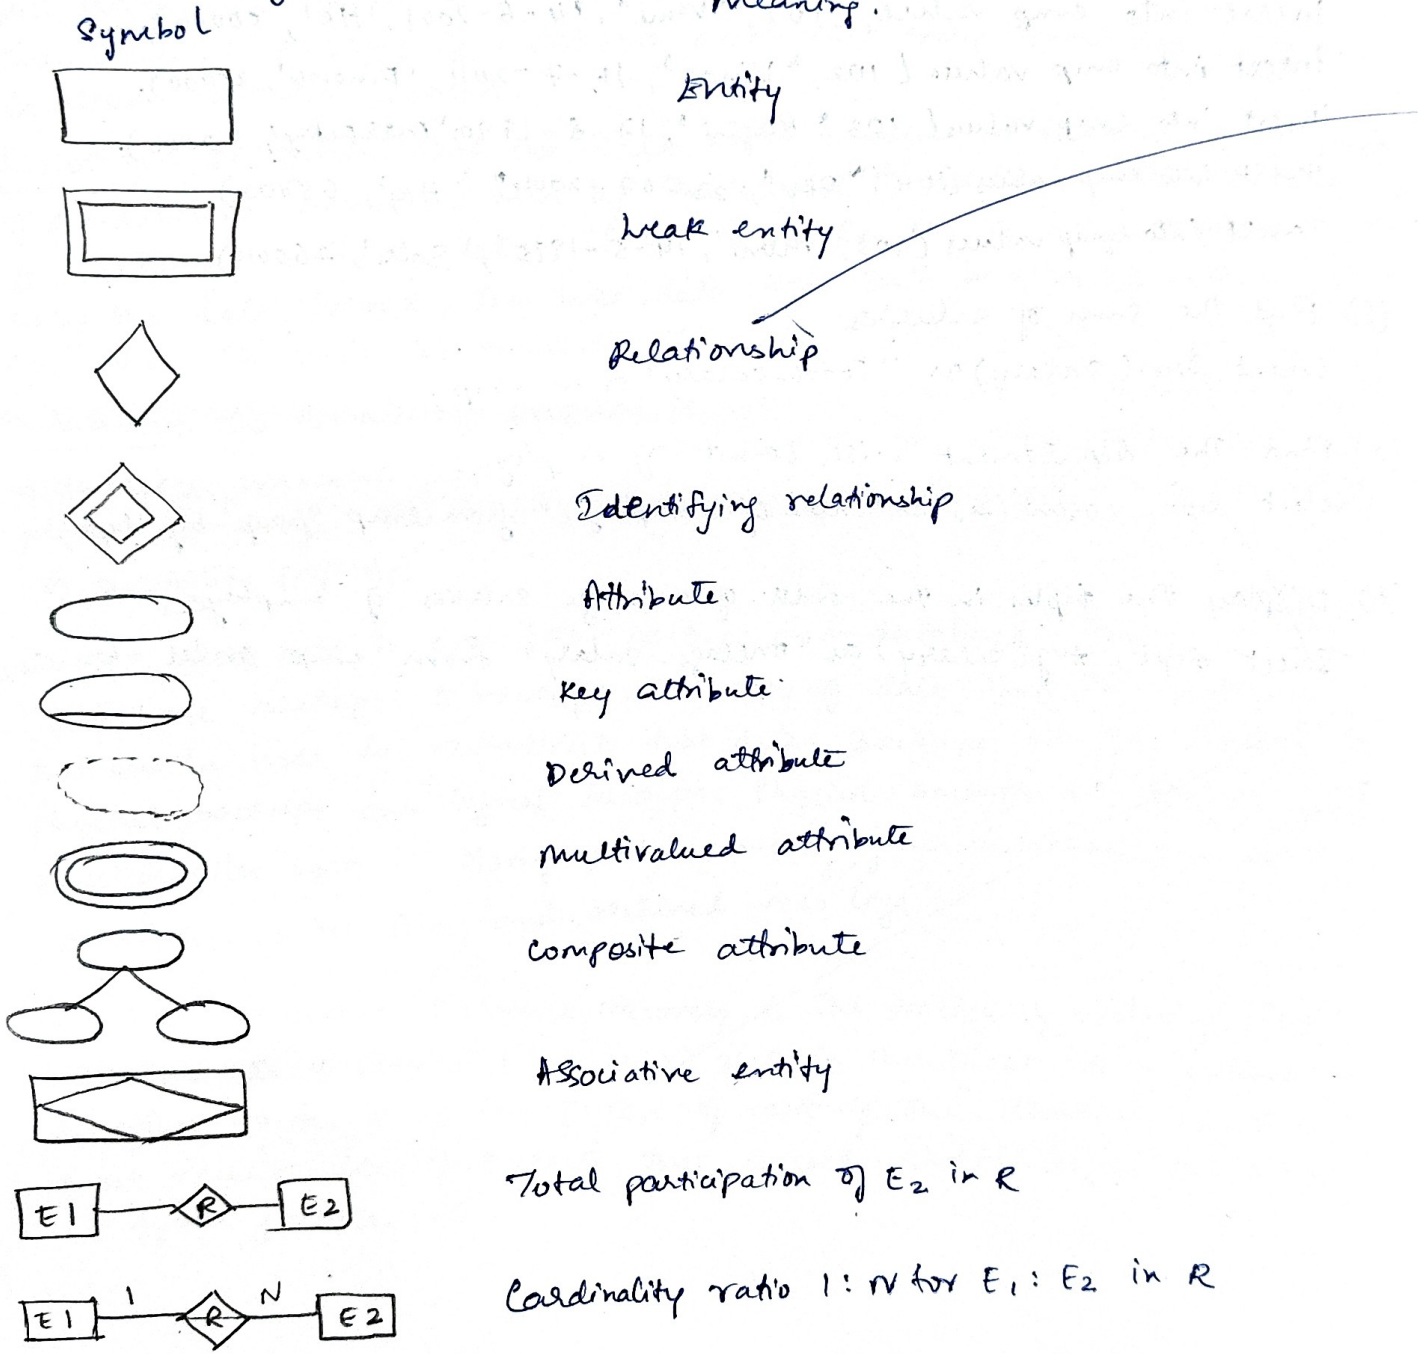 Symbol
Meaning.
Entity
Weak entity
Relationship
Identifying relationship
Attribute.
Key attribute.
Derived attribute
Multivalued attribute
Composite attribute
Associative entity
E1 R E2
Total participation of E2 in R
1 N
E1 R E2
Cardinality ratio 1:N for E1:E2 in R